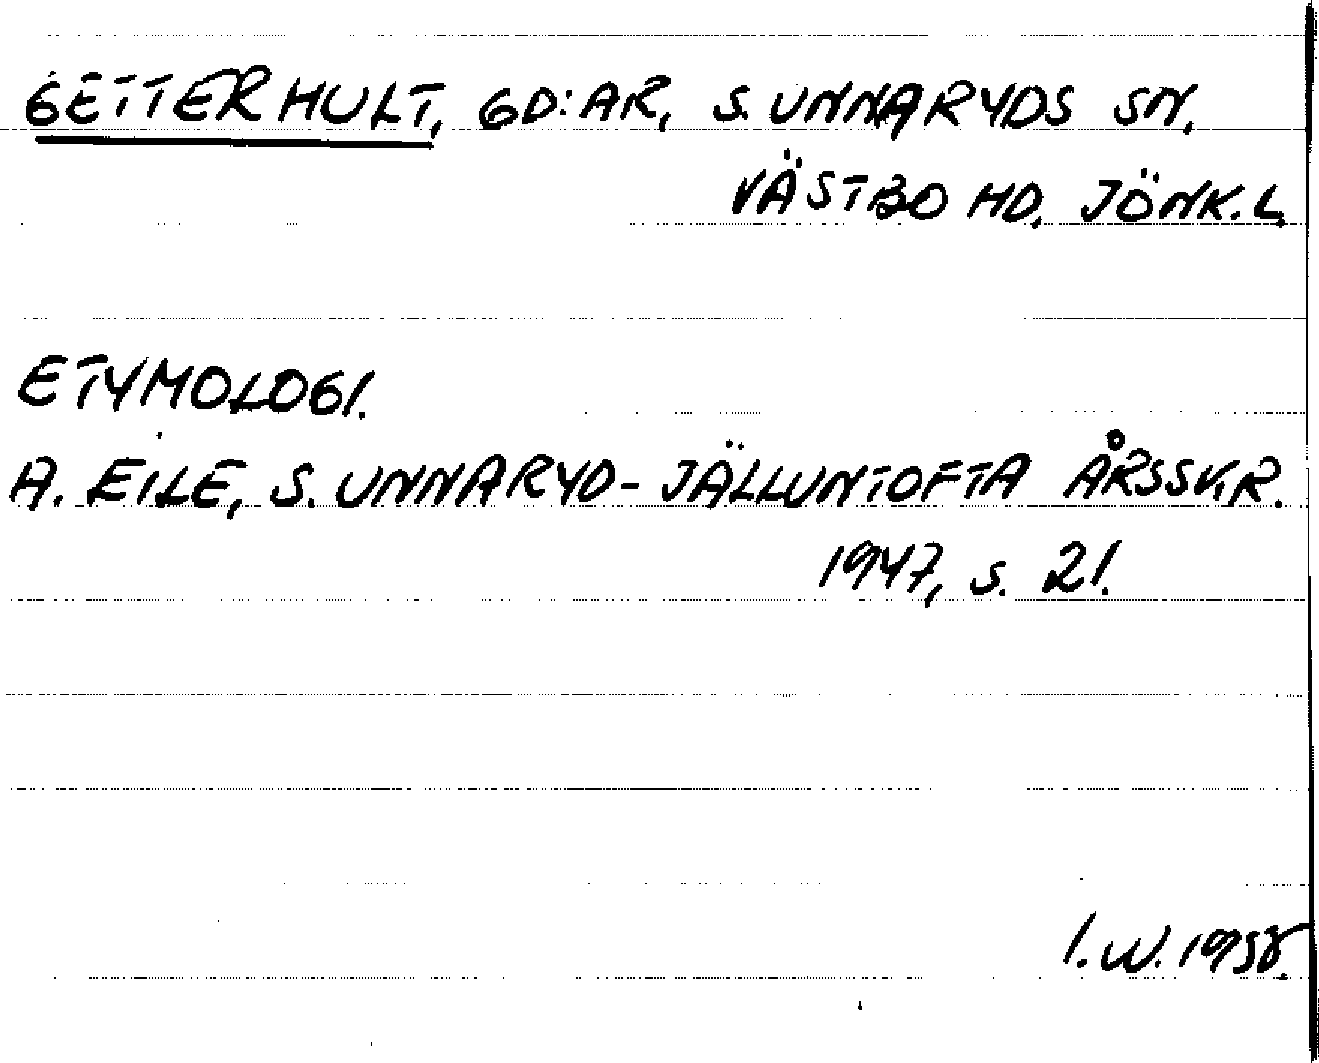 GETTERHULT, GD:AR, S. UNNARYDS SN,
VÄSTBO HD, JÖNK.L.
ETYMOLOGI.
A. EILE, S. UNNARYD-JÄLLUNTOFTA ÅRSSKR.
1947, S. 21.
I.W. 1958.